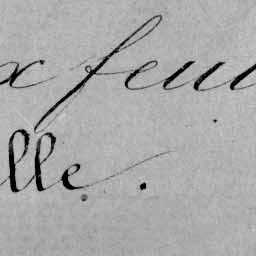 x feui
lle.